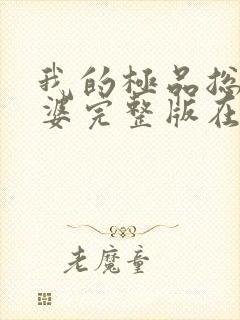 我的極品総
婆完整版在
老魔童